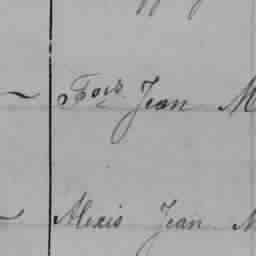 Fois Jean M
Alexis Jean M